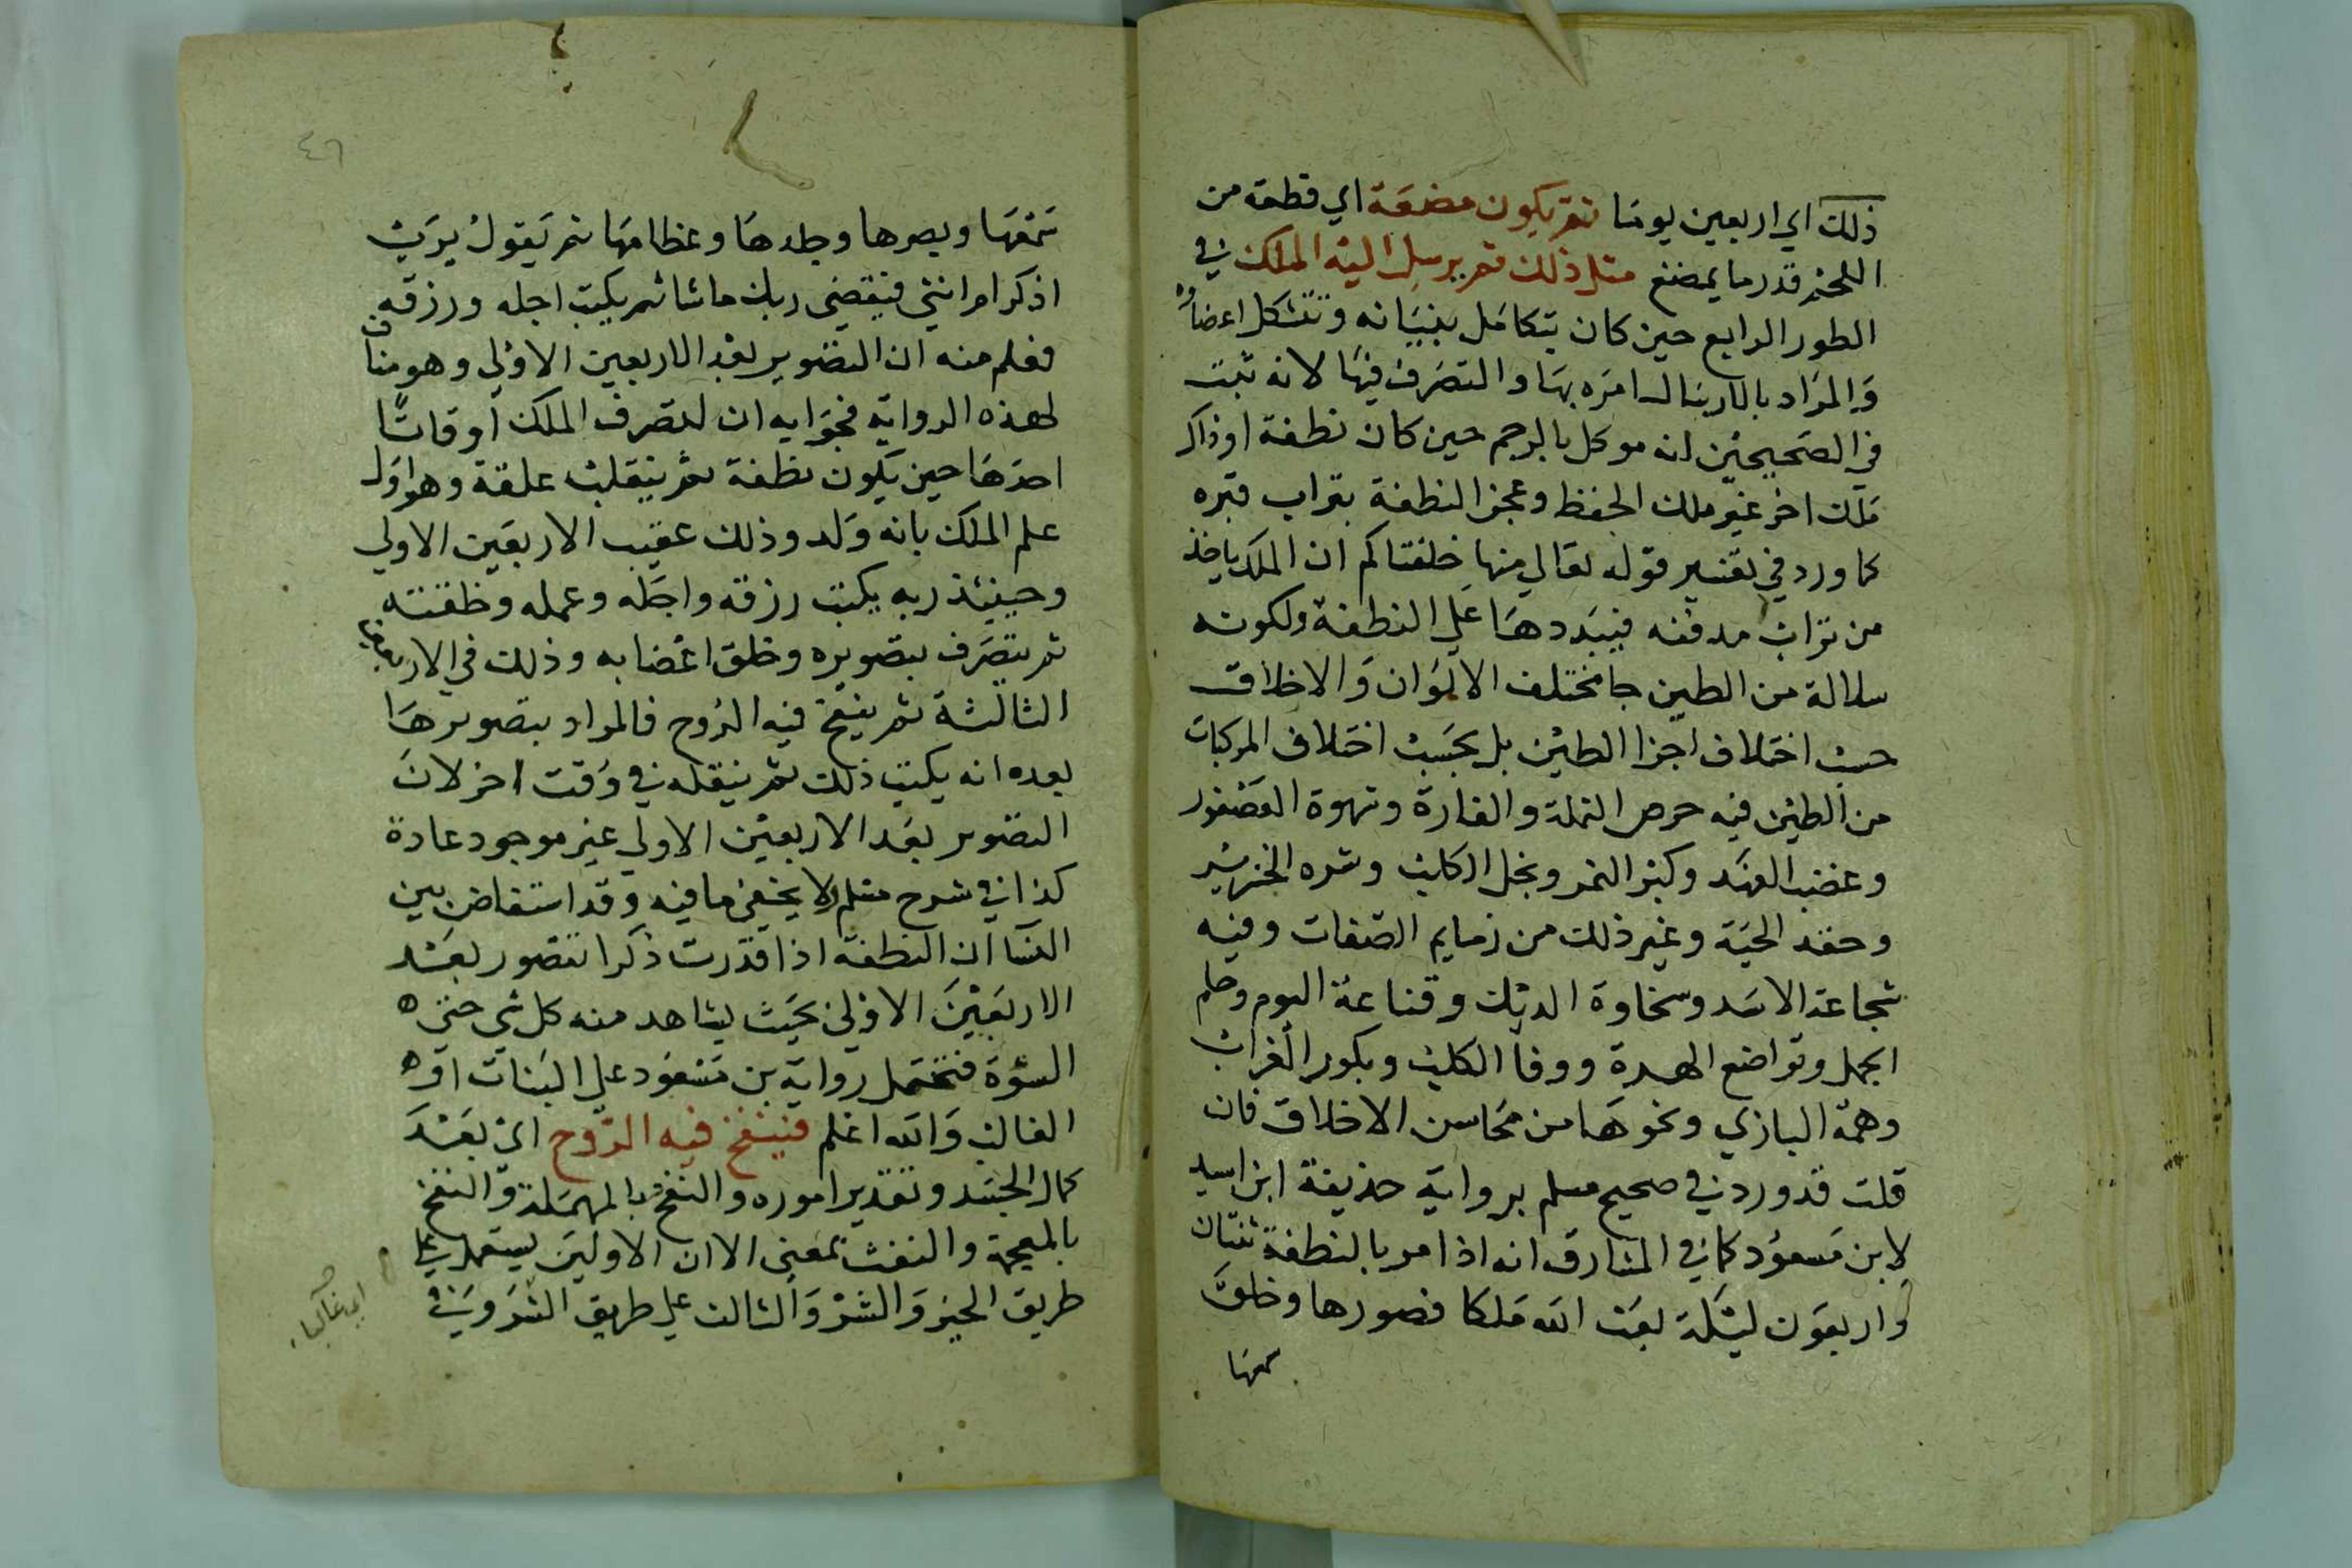 ذلك اي اربعين يوما ثم يكون مضغة اي قطعة من
اللحم قدر ما يمضغ مثل ذلك ثم يرسل اليه الملك في
الطور الرابع حين كان يتكامل بنيانه وتتشكل اعضاوه
والمراد بالارسال امره بها والتصرف فيها لانه ثبت
في الصحيحين انه موكل بالرحم حين كان نطفة او ذاكر
ملك اخر غير ملك الحفظ وعجن النطفة بتراب قبره
كما ورد في تفسير قوله تعالي منها خلقناكم ان الملك ياخذ
من تراب مدفنه فيبددها علي النطفة ولكونه
سلالة من الطين جا مختلف الالوان والاخلاق
حسب اختلاف اجزا الطين بل بحسب اختلاف المركبات
من الطين فيه حرص النملة والفارة وشهوة العصفور
وغضب الفهد وكبر النمر وبخل الكلب وشره الخنزير
وحقد الحية وغير ذلك من ذمايم الصفات وفيه
شجاعة الاسد وسخاوة الديك وقناعة البوم وحلم
الجمل وتواضع الهرة ووفا الكلب وبكور الغراب
وهمة البازي ونحوها من محاسن الاخلاق فان
قلت قد ورد في صحيح مسلم برواية حذيفة ابن اسيد
لابن مسعود كما في المشارق انه اذا مر بالنطفة ثنتان
واربعون ليلة بعث الله ملكا فصورها وخلق
سمعها
٤٦
سمعها وبصرها وجلدها وعظامها ثم يقول يرب
اذكر ام انثي فيقضي ربك ما شا ثم يكتب اجله ورزقه
فعلم منه ان التصوير بعد الاربعين الاولي وهو مناف
لهذه الرواية فجوابه ان لتصرف الملك اوقاتا
احدها حين يكون نطفة ثم ينقلب علقة وهو اول
علم الملك بانه ولد وذلك عقيب الاربعين الاولي
وحينئذ ربه يكتب رزقه واجله وعمله وخلقته
ثم يتصرف بتصويره وخلق اعضايه وذلك في الاربعين
الثالثة ثم ينفخ فيه الروح فالمراد بتصويرها
بعده انه يكتب ذلك ثم ينقله في وقت اخر لان
التصوير بعد الاربعين الاولي غير موجود عادة
كذا في شرح مسلم ولا يخفي ما فيه وقد استفاض بين
النسا ان النطفة اذا قدرت ذكرا تتصور بعد
الاربعين الاولي بحيث يشاهد منه كل شي حتي
السوة فتحمل رواية بن مسعود علي البنات او
الغالب والله اعلم فينفخ فيه الروح اي بعد
كمال الجسد وتقدير اموره والنفح بالمهملة والنفخ
بالمعجمة والنفث بمعني الا ان الاولين يستعمل علي
طريق الخير والشر والثالث علي طريق الشر وفي